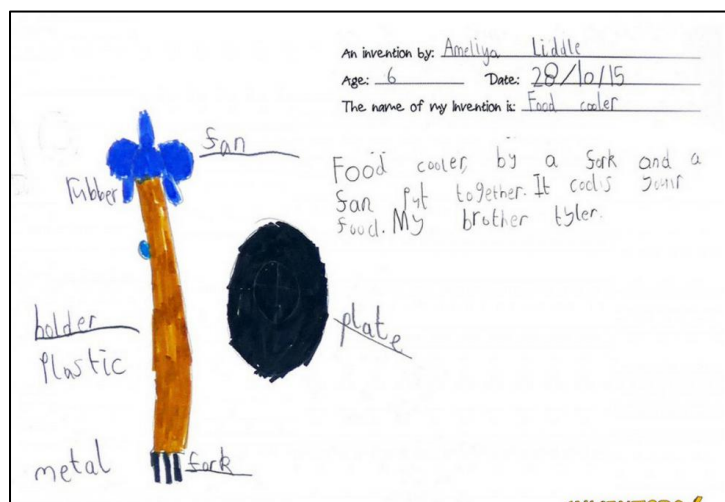 An invention by: Ameliya Liddle
Age: 6 Date: 28/10/15
The name of my invention is: Food cooler
Food cooler, by a fork and a
fan Put together. It cools your
food. My brother tyler.
fan
rubber
holder
Plastic
plate
metal
fork